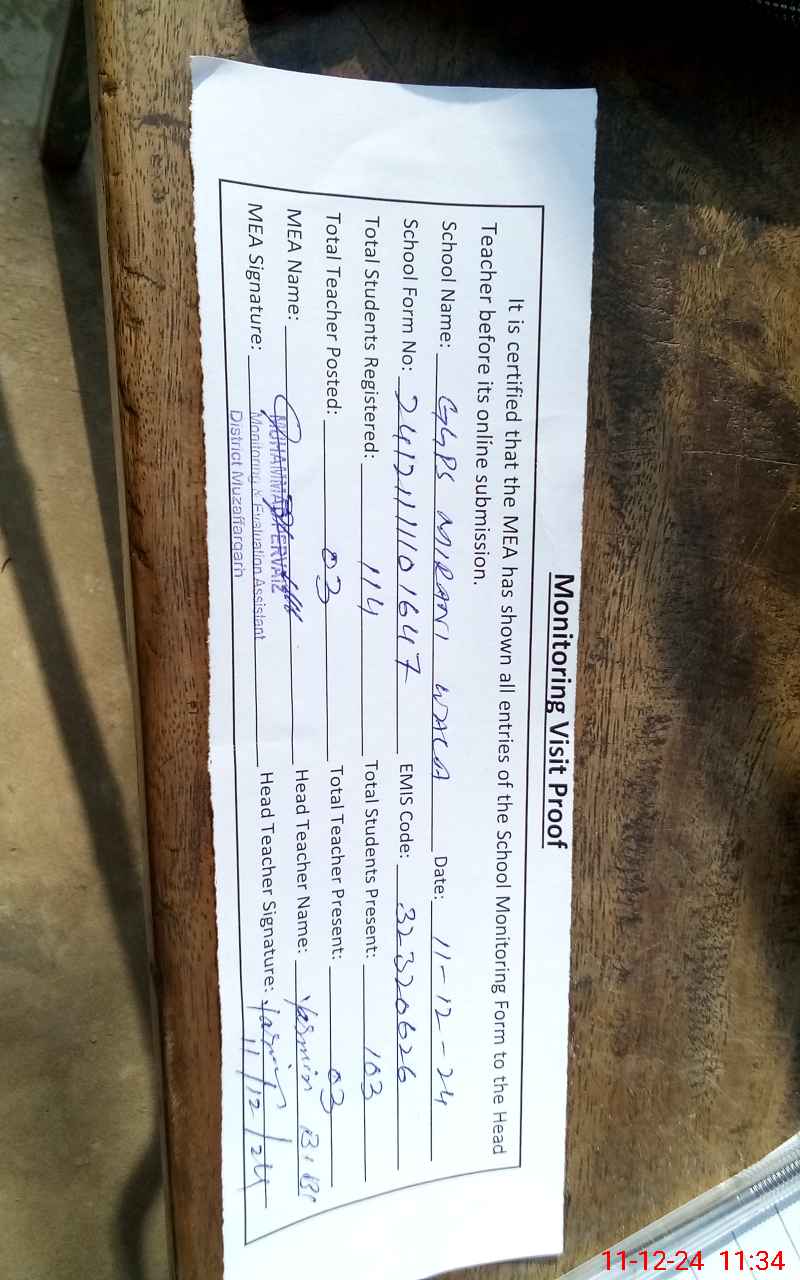 Monitoring Visit Proof
It is certified that the MEA has shown all entries of the School Monitoring Form to the Head
Teacher before its online submission.
School Name: GGPS MIRANI WALA Date: 11-12-24
School Form No: 2412111101647 EMIS Code: 32320626
Total Students Registered: 114 Total Students Present: 103
Total Teacher Posted: 03 Total Teacher Present: 03
MEA Name: MUHAMMAD PERVAIZ Head Teacher Name: Yasmin Bibi
MEA Signature: Monitoring & Evaluation Assistant Head Teacher Signature: Yasmin
District Muzaffargarh 11/12/24
11-12-24 11:34